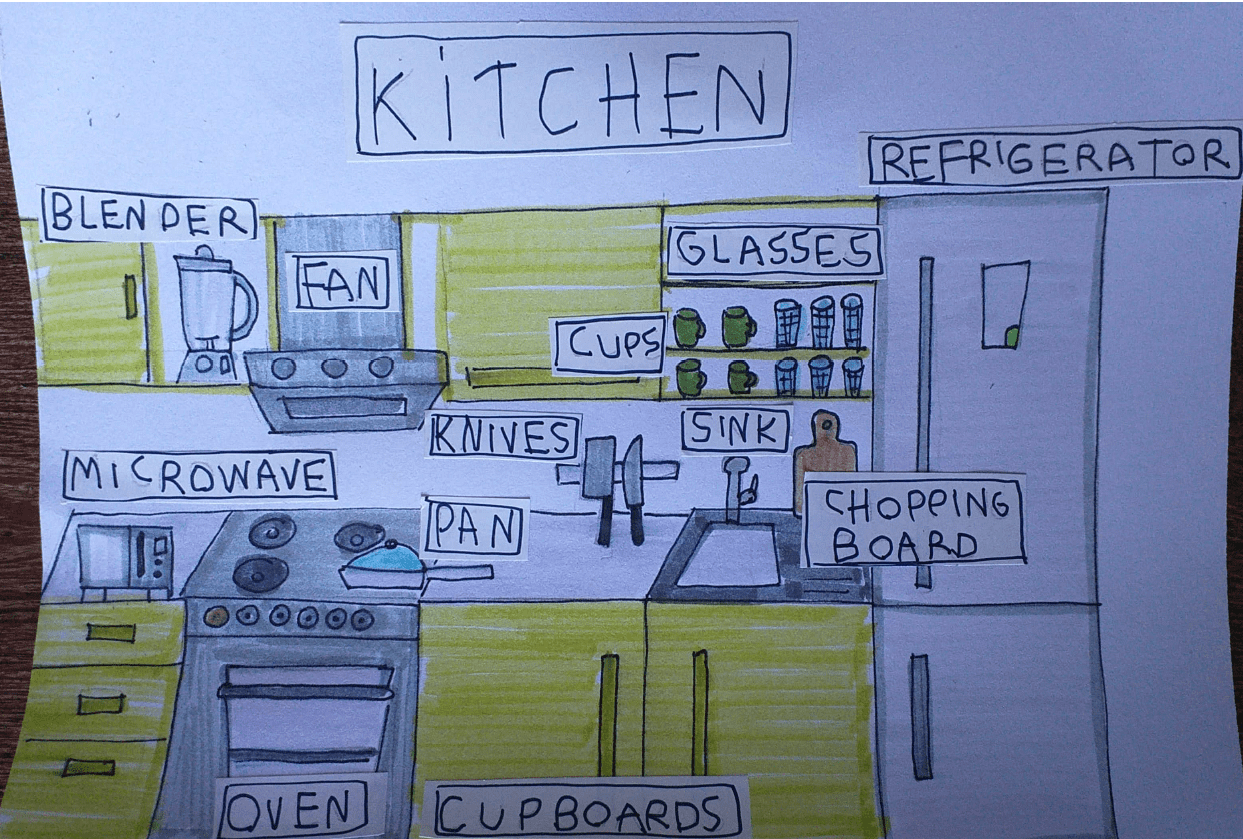 KiTCHEN
REFRIGERATOR
BLENDER
GLASSES
FAN
CUPS
KNIVES
SINK
MICROWAVE
PAN
CHOPPING
BOARD
OVEN
CUPBOARDS